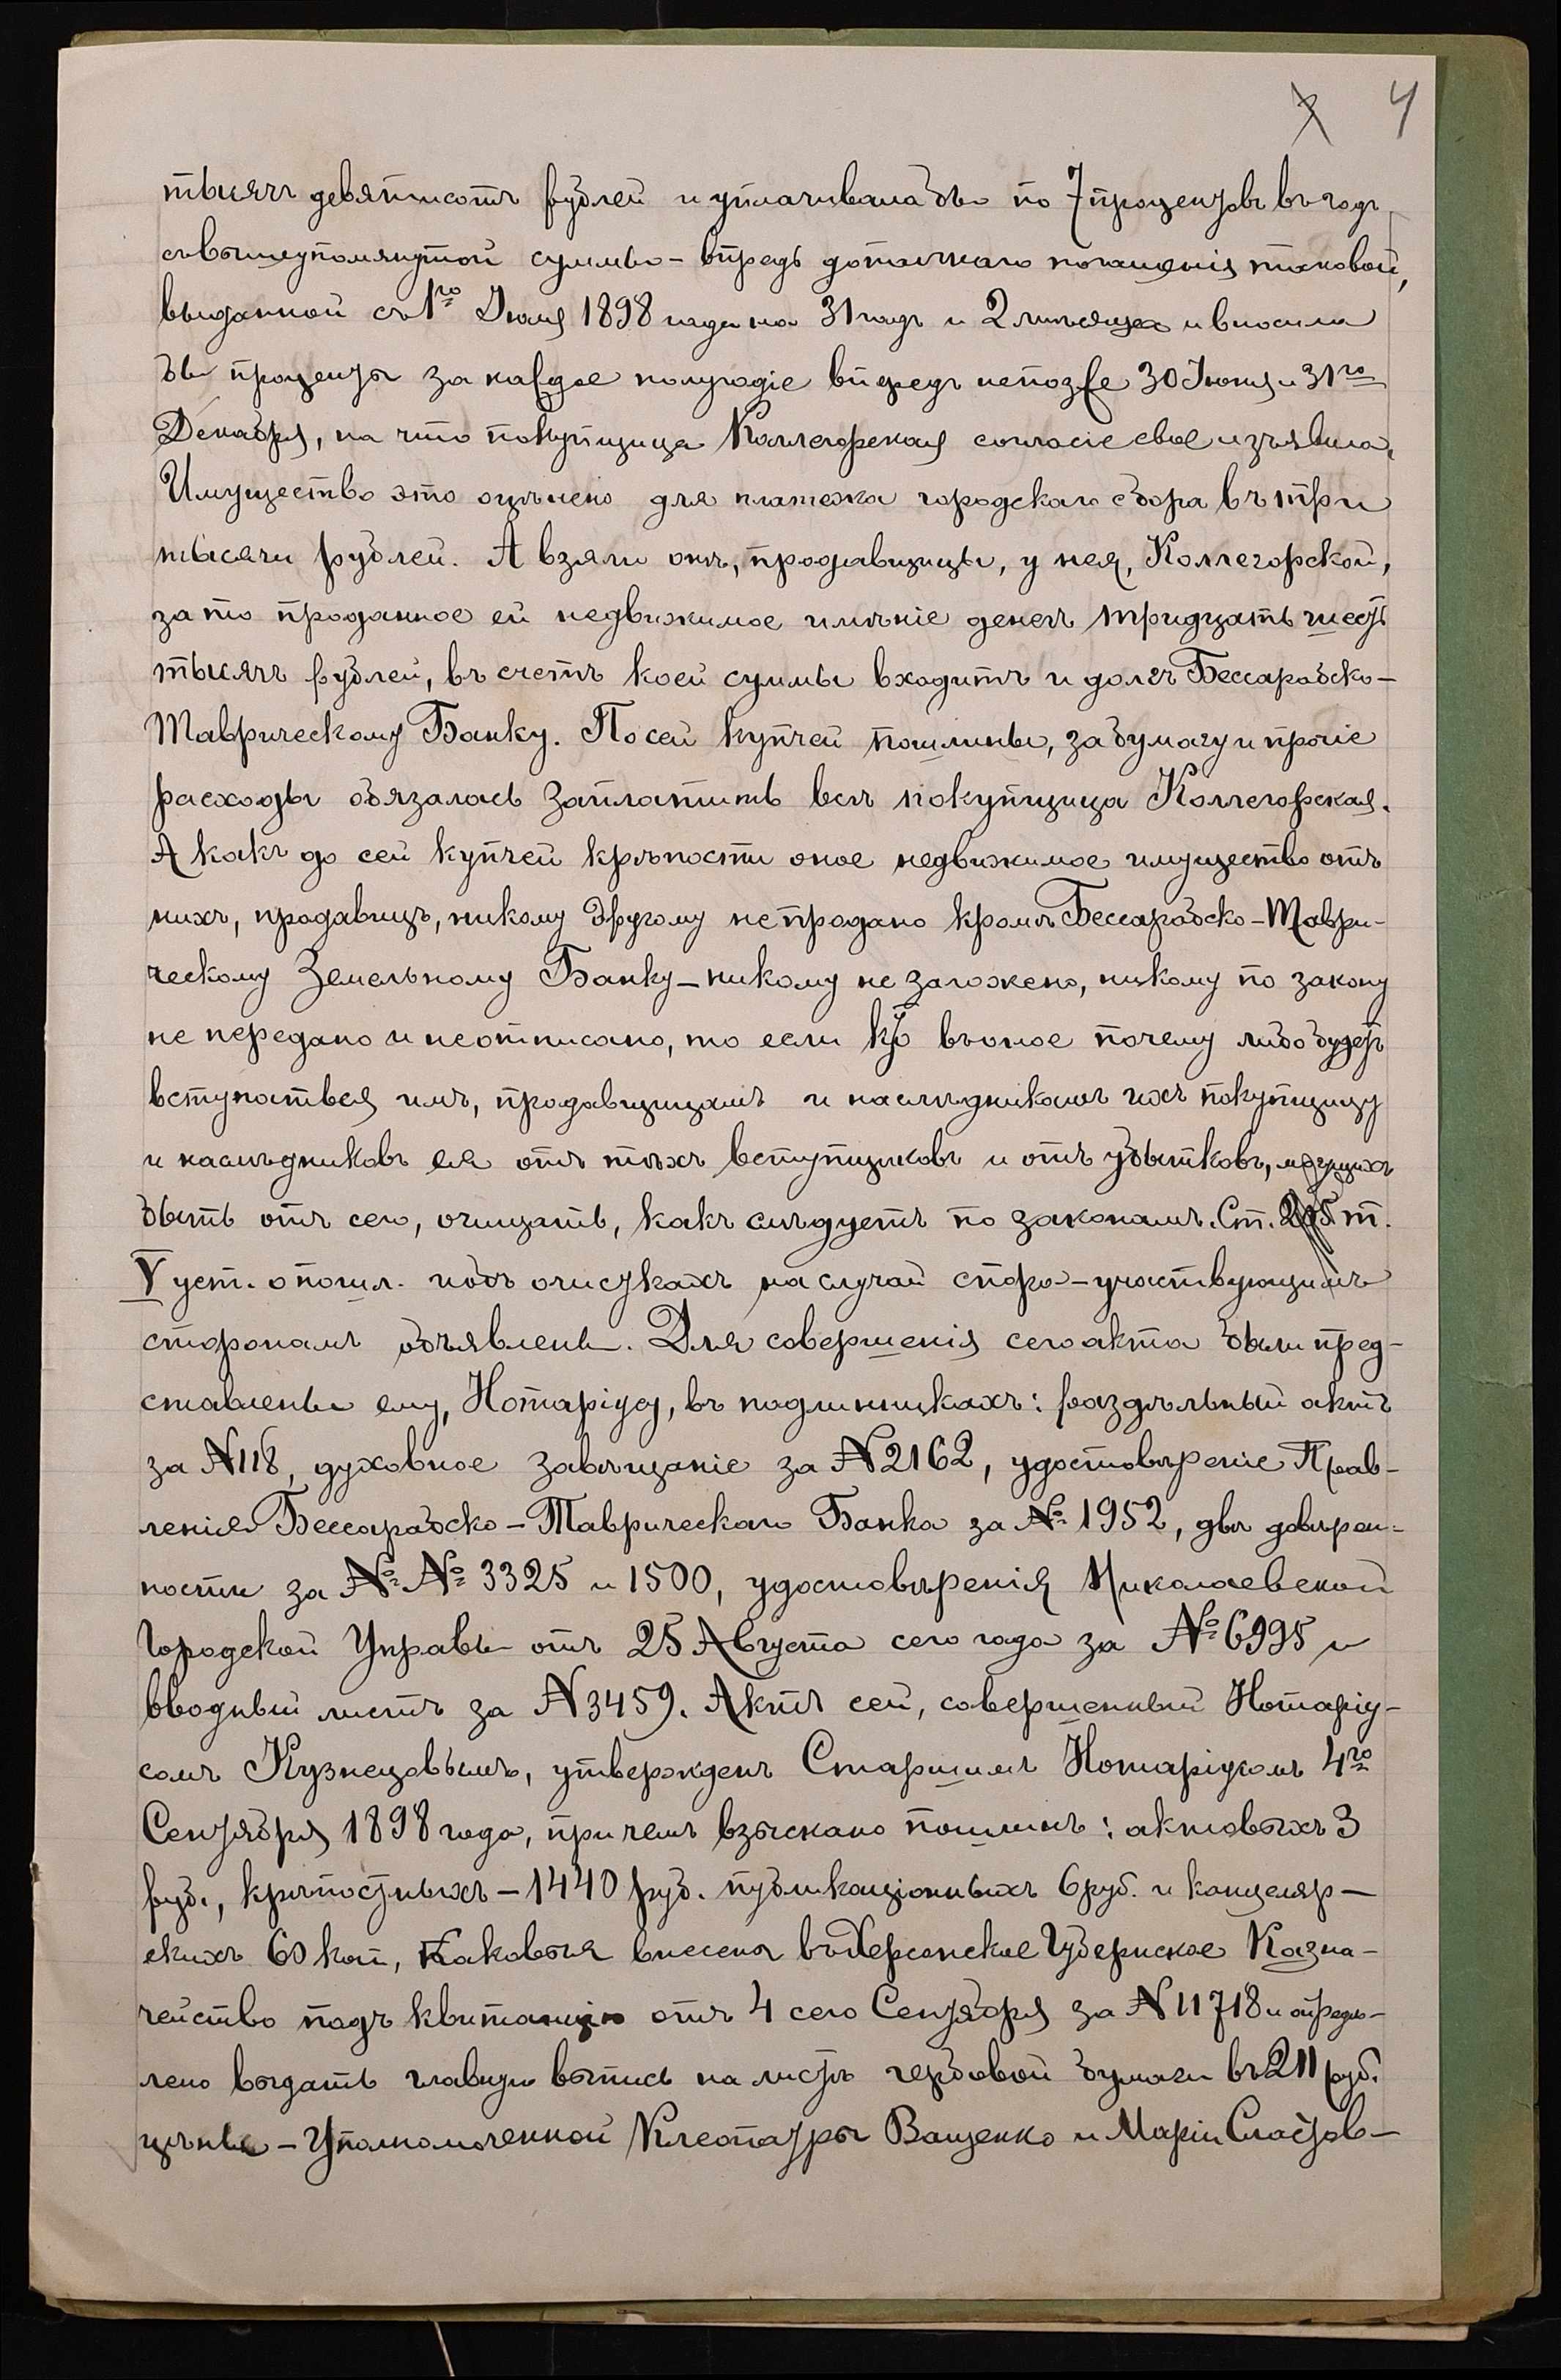 4
тысячъ девятисотъ рублей и уплачивала бы по 7 процентовъ въ годъ
съ вышеупомянутой суммы - впредь до точнаго погашенія таковой,
выданной съ 1го Іюля 1898 года на 31 годъ и 2 мѣсяца и вносила
бы проценты за каждое полугодіе впередъ не позже 30 Іюня и 31го
Декабря, на что покупщица Коллегорская согласіе свое изъявила.
Имущество это оцѣнено для платежа городскаго сбора въ три
тысячи рублей. А взяли онѣ, продавщицы, у нея, Коллегорской,
за то проданное ей недвижимое имѣніе денегъ тридцать шесть
тысячъ рублей, въ счетъ коей суммы входитъ и долгъ Бессарабско-
Таврическому Банку. По сей купчей пошлины, за бумагу и прочіе
расходы обязалась заплатить всѣ покупщица Коллегорская.
А какъ до сей купчей крѣпости оное недвижимое имущество отъ
нихъ, продавщицъ, никому другому не продано кромѣ Бессарабско-Таври-
ческому Земельному Банку - никому не заложено, никому по закону
не передано и не отписано, то если кто въ оное почему либо будетъ
вступаться имъ, продавщицамъ и наслѣдникамъ ихъ покупщицу
и наслѣдниковъ ея отъ тѣхъ вступщиковъ и отъ убытковъ, могущихъ
быть отъ сего, очищать, какъ слѣдуетъ по законамъ. Ст. т.
V уст. о пошл. и объ очисткахъ на случай спора - участвующимъ
сторонамъ объявлены. Для совершенія сего акта были пред-
ставлены ему, Нотаріусу, въ подлинникахъ: раздѣльный актъ
за №118, духовное завѣщаніе за №2162, удостовѣреніе Прав-
ленія Бессарабско-Таврическаго Банка за № 1952, двѣ довѣрен-
ности за №№ 3325 и 1500, удостовѣренія Николаевской
Городской Управы отъ 25 Августа сего года за № 6995 и
вводный листъ за №3459. Актъ сей, совершенный Нотаріу-
сомъ Кузнецовымъ, утвержденъ Старшимъ Нотаріусомъ 4го
Сентября 1898 года, при чемъ взыскано пошлинъ: актовыхъ 3
руб., крѣпостныхъ - 1440 руб. публикаціонныхъ 6 руб. и канцеляр-
скихъ 60 коп, каковыя внесены въ Херсонское Губернское Казна-
чейство подъ квитанцію отъ 4 сего Сентября за №11718 и опредѣ-
лено выдать главную выпись на листѣ гербовой бумаги въ 211 руб.
цѣны - Уполномоченной Клеопатры Ващенко и Маріи Сластов-